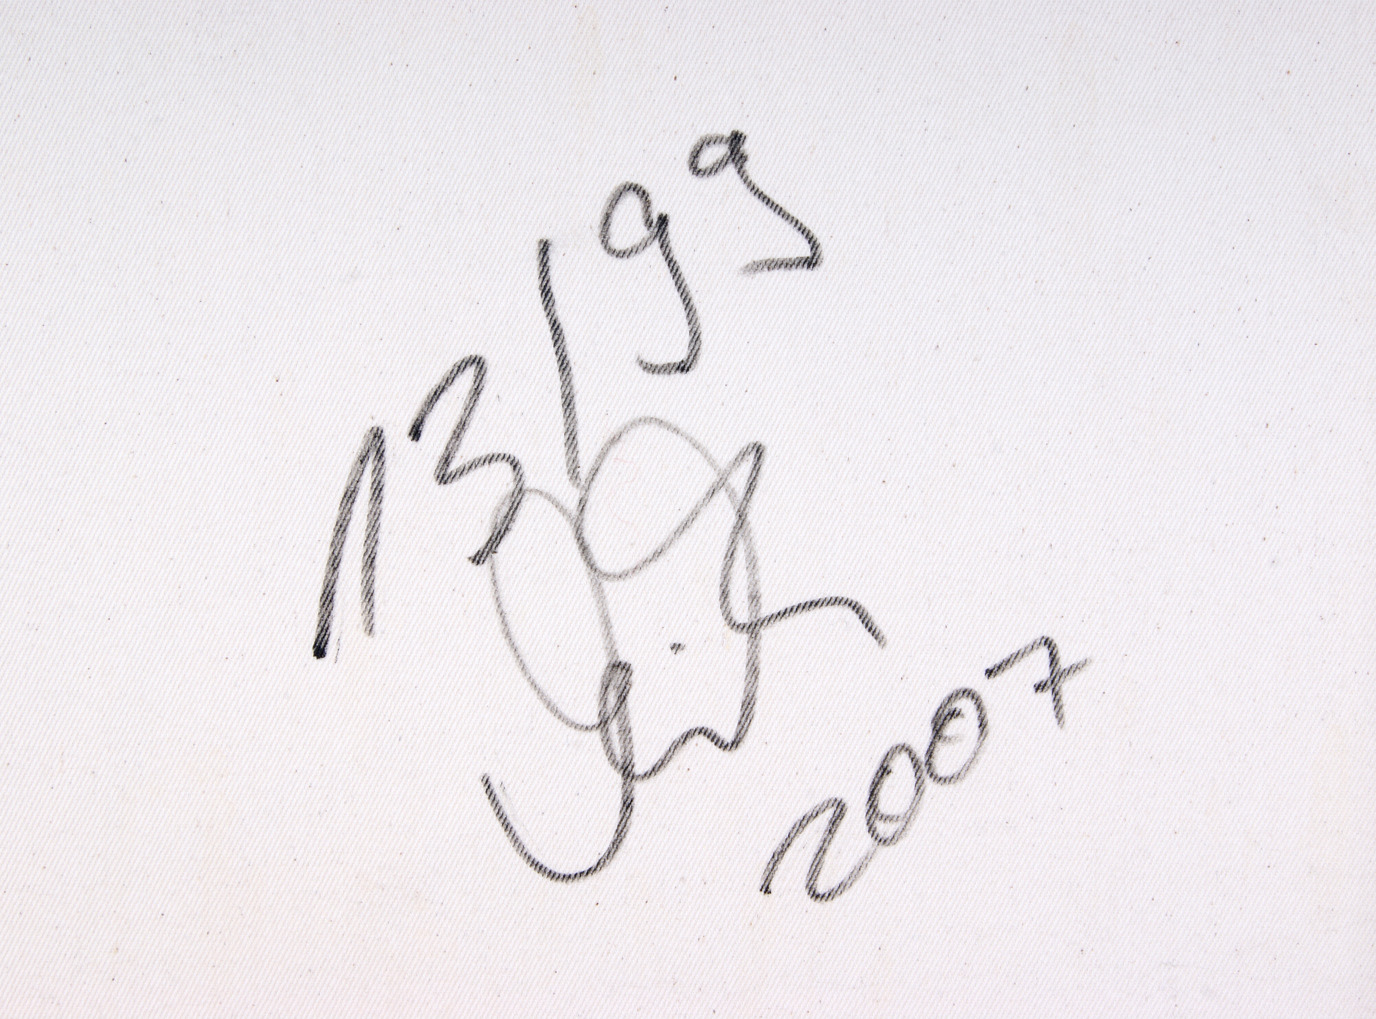 13/99
2007